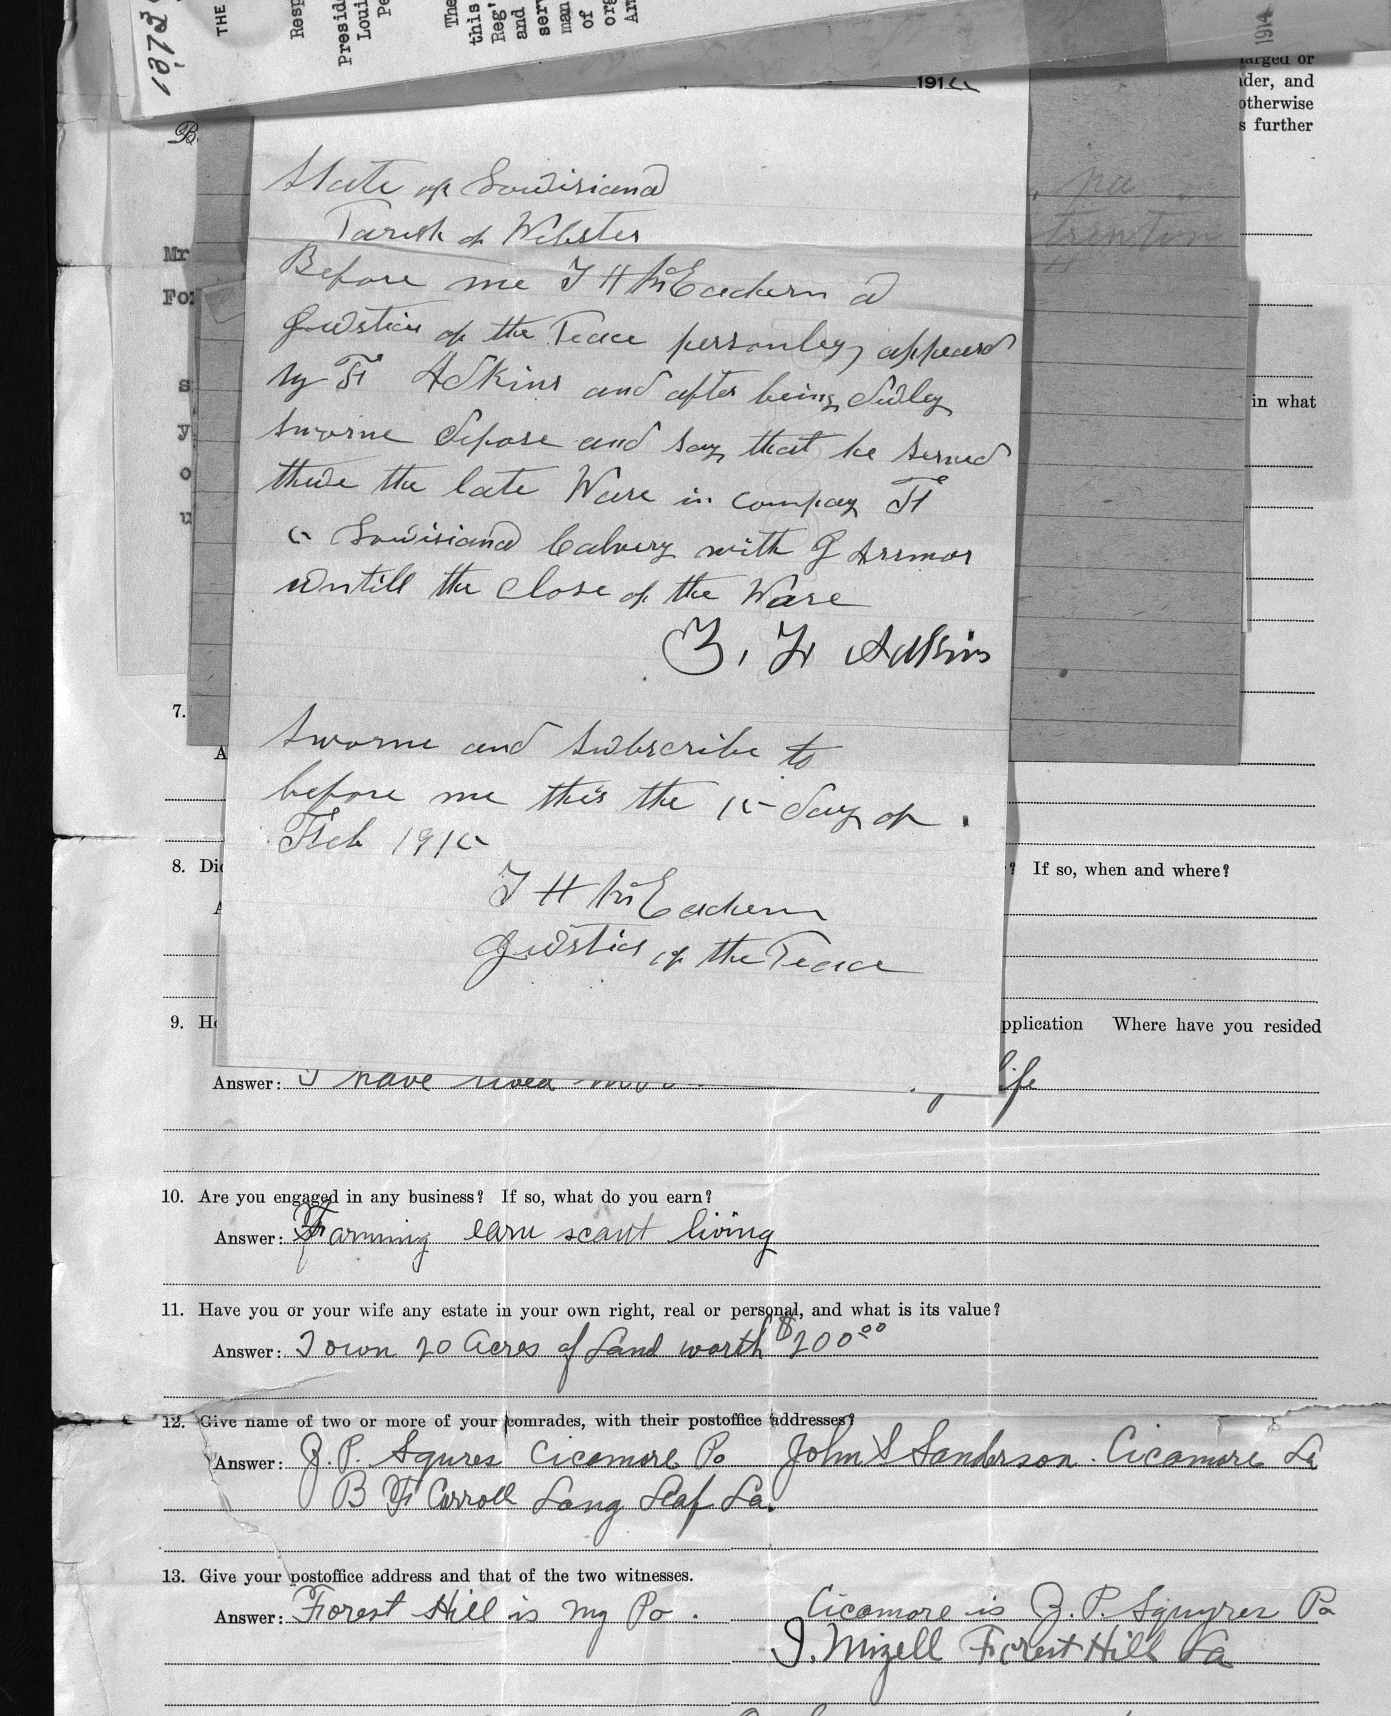 1872
THE
Resp
Presid
Loui
Pe
The
this
Reg'
and
serv
man
of
org
1914
1915
arged or
ader, and
otherwise
s further
B
State of Louisiana
Parish of Webster
Before me T H McEachern a
Justics of the Peace personley appeard
in what
sworne depose and say that he served
thrue the late Ware in compay F
5 Louisiana Calvery with G Armor
untill the close of the Ware
Z. F. Adkins
Sworne and subscribe to
before me this the 15 day of
Feb 1915
T H McEachern
Justics of the Peace
Mr
Fo
s
y
o
u
7.
A
8. Did
? If so, when and where?
9. Ho
pplication Where have you resided
Answer: I have lived life
10. Are you engaged in any business? If so, what do you earn?
Answer: Farming earn scant living
11. Have you or your wife any estate in your own right, real or personal, and what is its value?
Answer: I own 20 Acres of Land worth $200.00
12. Give name of two or more of your comrades, with their postoffice addresses?
Answer: J. P. Squres Cicamore Po John S Sanderson. Cicamore La
B F Carroll Long Leaf La.
13. Give your postoffice address and that of the two witnesses.
Answer: Forest Hill is my Po. Cicamore is J. P. Squyres Po
I. Mizell Forest Hill La